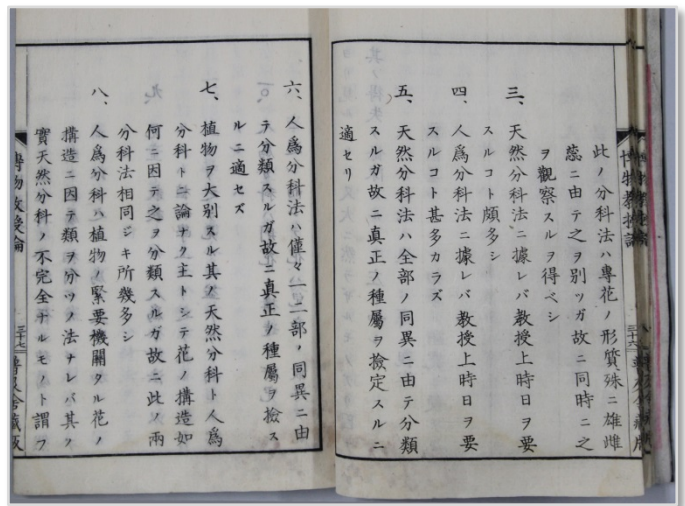 博物教授論 三十六 普及舍藏版
此ノ分科法ハ專花ノ形質殊ニ雄雌
蕊ニ由テ之ヲ別ツガ故ニ同時ニ之
ヲ觀察スルヲ得ベシ
三、天然分科法ニ據レバ教授上時日ヲ要
スルコト頗多シ
四、人爲分科法ニ據レバ教授上時日ヲ要
スルコト甚多カラズ
五、天然分科法ハ全部ノ同異ニ由テ分類
スルガ故ニ真正ノ種屬ヲ檢定スルニ
適セリ
六、人爲分科法ハ僅々一二部ノ同異ニ由
テ分類スルガ故ニ真正ノ種屬ヲ檢ス
ルニ適セズ
七、植物ヲ大別スル其ノ天然分科ト人爲
分科トニ論ナク主トシテ花ノ搆造如
何ニ因テ之ヲ分類スルガ故ニ此ノ兩
分科法相同ジキ所幾多シ
八、人爲分科ハ植物ノ緊要機關タル花ノ
搆造ニ因テ類ヲ分ツノ法ナレバ其ノ
實天然分科ノ不完全ナルモノト謂フ
博物教授論 三十七 普及舍藏版